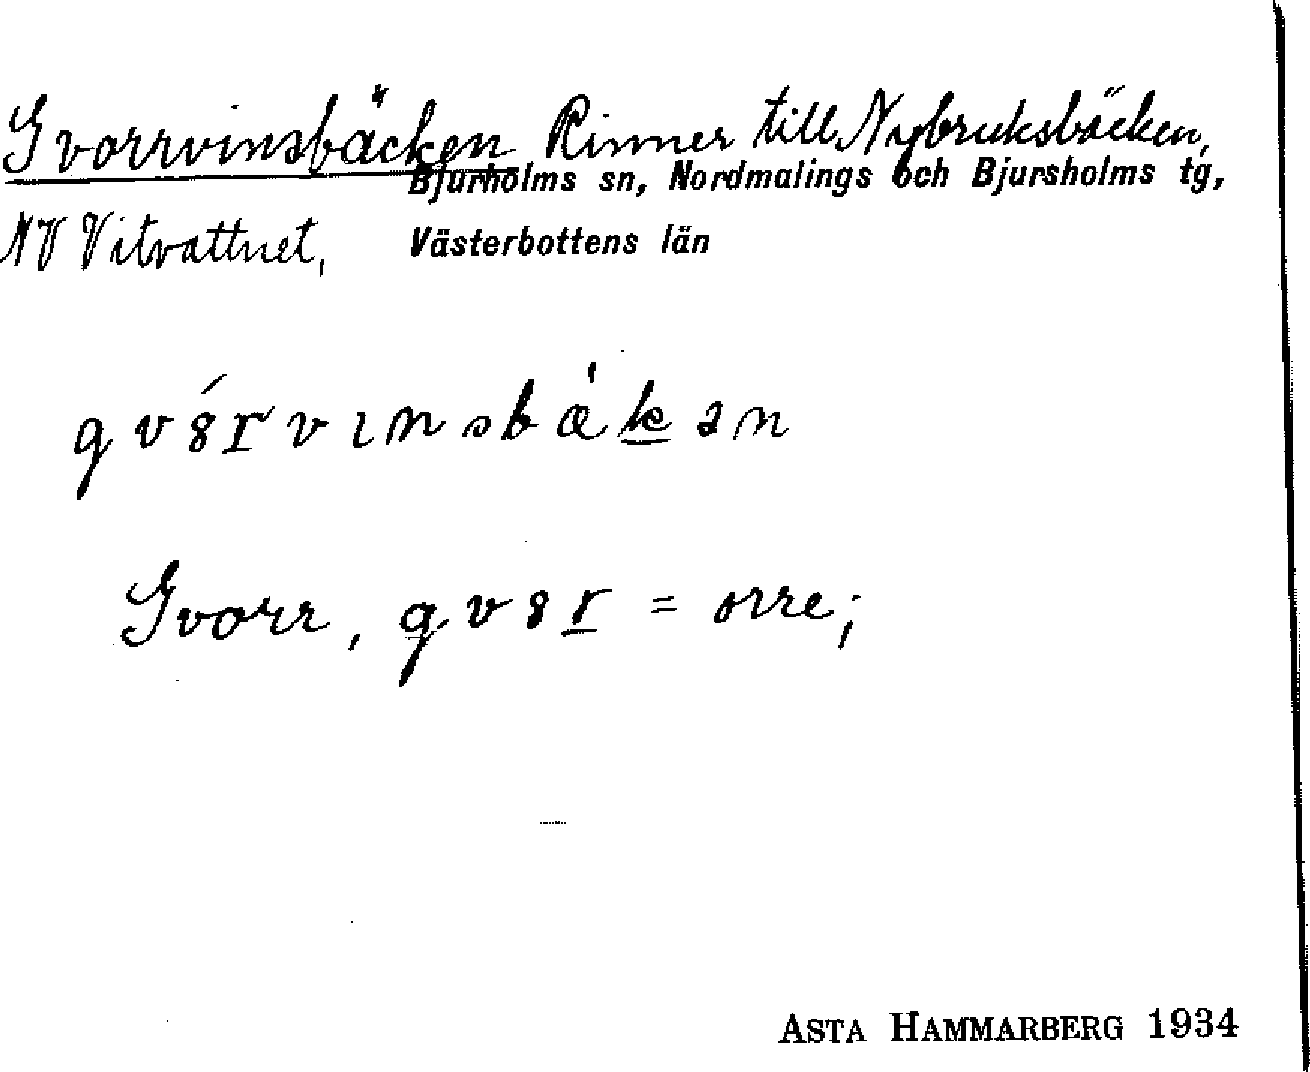 Gvorrvinsbäcken Rinner till Nybruksbäcken,
Bjurholms sn, Nordmalings och Bjursholms tg,
NV Vitvattnet, Västerbottens län
gv8́rvɩnsbæ̀kən
Gvorr, gv8r = orre;
ASTA HAMMARBERG 1934